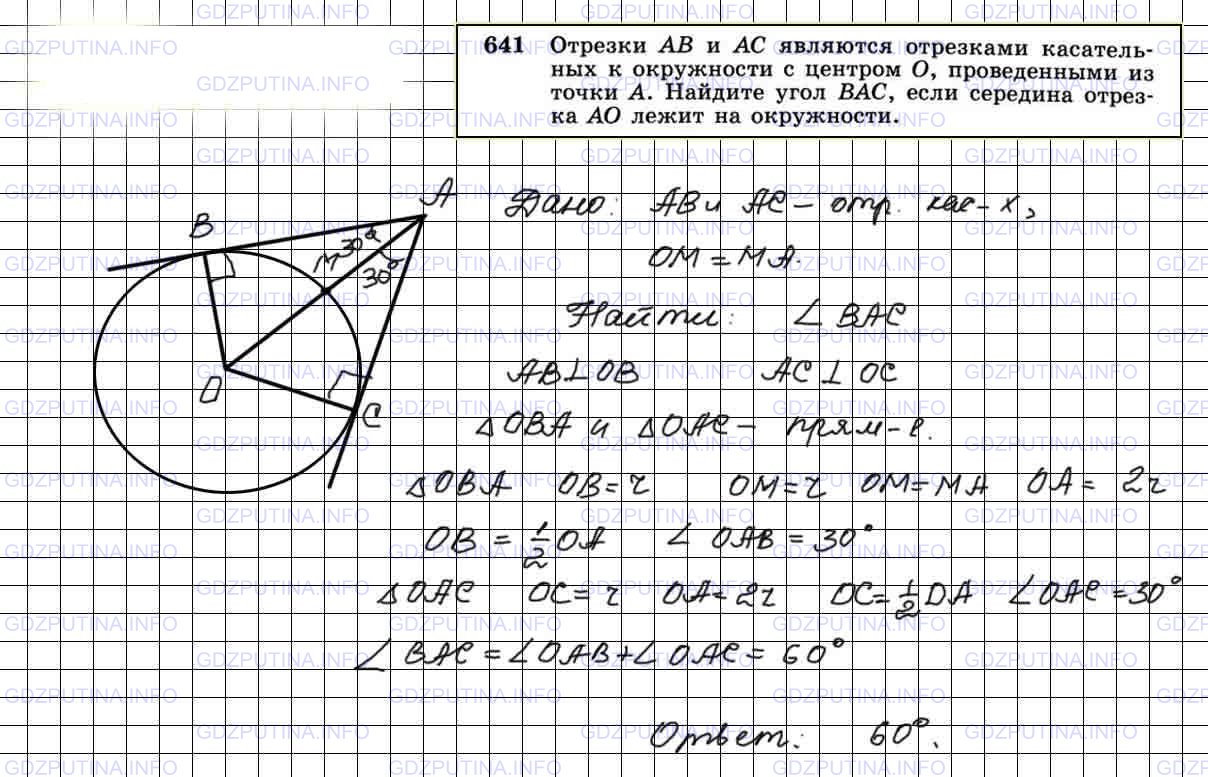 GDZPUTINA.INFO
641 Отрезки AB и AC являются отрезками касатель-
ных к окружности с центром O, проведенными из
точки A. Найдите угол BAC, если середина отрез-
ка AO лежит на окружности.
A
B
M
30°
30°
O
C
Дано: AB и AC – отр. кас-х,
OM = MA.
Найти: ∠ BAC
AB ⊥ OB AC ⊥ OC
△ OBA и △ OAC – прям-е.
△ OBA OB = r OM = r OM = MA OA = 2r
OB = 1/2 OA ∠ OAB = 30°
△ OAC OC = r OA = 2r OC = 1/2 OA ∠ OAC = 30°
∠ BAC = ∠ OAB + ∠ OAC = 60°
Ответ: 60°.